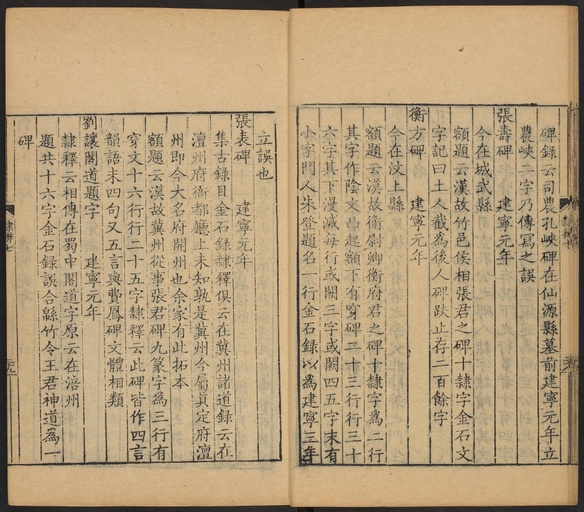 碑錄云司農孔峽碑在仙源縣墓前建寧元年立
農峽二字乃傳寫之誤
張壽碑　建寧元年
今在城武縣
額題云漢故竹邑侯相張君之碑十隸字金石文
字記曰土人截為後人碑趺止存二百餘字
衡方碑　建寧元年
今在汶上縣
額題云漢故衛尉卿衡府君之碑十隸字為二行
其字作陰文凸起額下有穿碑二十三行行三十
六字其下漫滅每行或闕三字或闕四五字末有
小字門人朱登題名一行金石錄以為建寧三年
立誤也
張表碑　建寧元年
集古錄目金石錄隸釋俱云在冀州諸道錄云在
澶州府衙都廳上未知孰是冀州今屬真定府澶
州即今大名府開州也余家有此拓本
額題云漢故冀州從事張君碑九篆字為三行有
穿文十六行行二十五字隸釋云此碑皆作四言
韻語末四句又五言與費鳳碑文體相類
劉讓閣道題字　建寧元年
隸釋云相傳在蜀中閣道字原云在涪州
題共十六字金石錄誤合緜竹令王君神道為一
碑